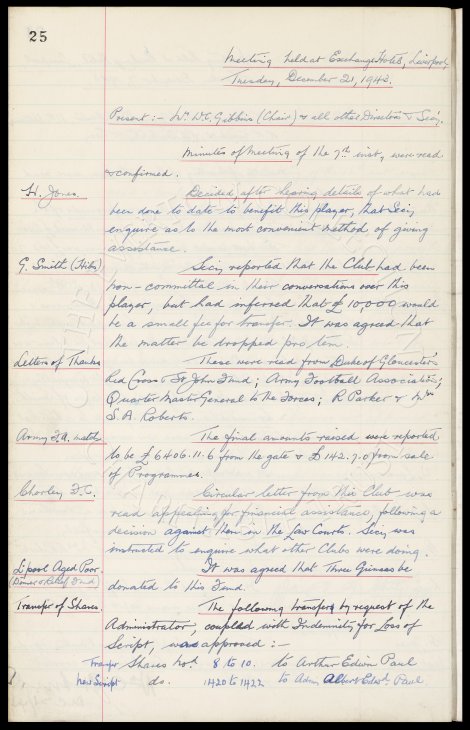 25
Meeting held at Exchange Hotel, Liverpool,
Tuesday, December 21, 1943.
Present :- Mr. W.C. Gibbins (Chair) & all other Directors & Secy.
Minutes of Meeting of the 7th inst, were read
& confirmed.
H. Jones. Decided, after hearing details of what had
been done to date to benefit this player, that Secy
enquire as to the most convenient method of giving
assistance.
G. Smith (Hibs) Secy reported that the Club had been
non-committal in their conversations over this
player, but had inferred that £10,000 would
be a small fee for transfer. It was agreed that
the matter be dropped pro tem.
Letters of Thanks These were read from Duke of Gloucester's
Red Cross & St John Fund; Army Football Association;
Quarter Master General to the Forces; R Parker & Mr
S. A. Roberts.
Army F.A. match The final amounts raised were reported
to be £6406.11.6 from the gate & £142.7.0 from sale
of Programmes.
Chorley F.C. Circular letter from this Club was
read appealing for financial assistance, following a
decision against them in the Law Courts. Secy was
instructed to enquire what other Clubs were doing.
L'pool Aged Poor It was agreed that Three Guineas be
(Dinner & Relief Fund donated to this Fund.
Transfer of Shares. The following transfers by request of the
Administrator, coupled with Indemnity for Loss of
Script, was approved :-
Transfer Shares nos 8 to 10. to Arthur Edwin Paul
New Script do. 1420 to 1422 to Admr Albert Edwd. Paul